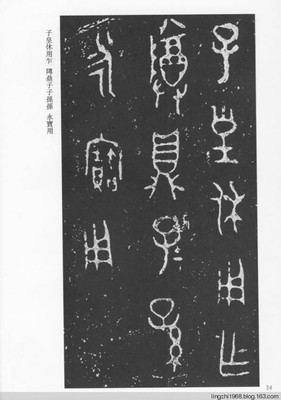 子皇休用乍
障鼎子子孫孫
永寶用
24
lingzhi1968.blog.163.com